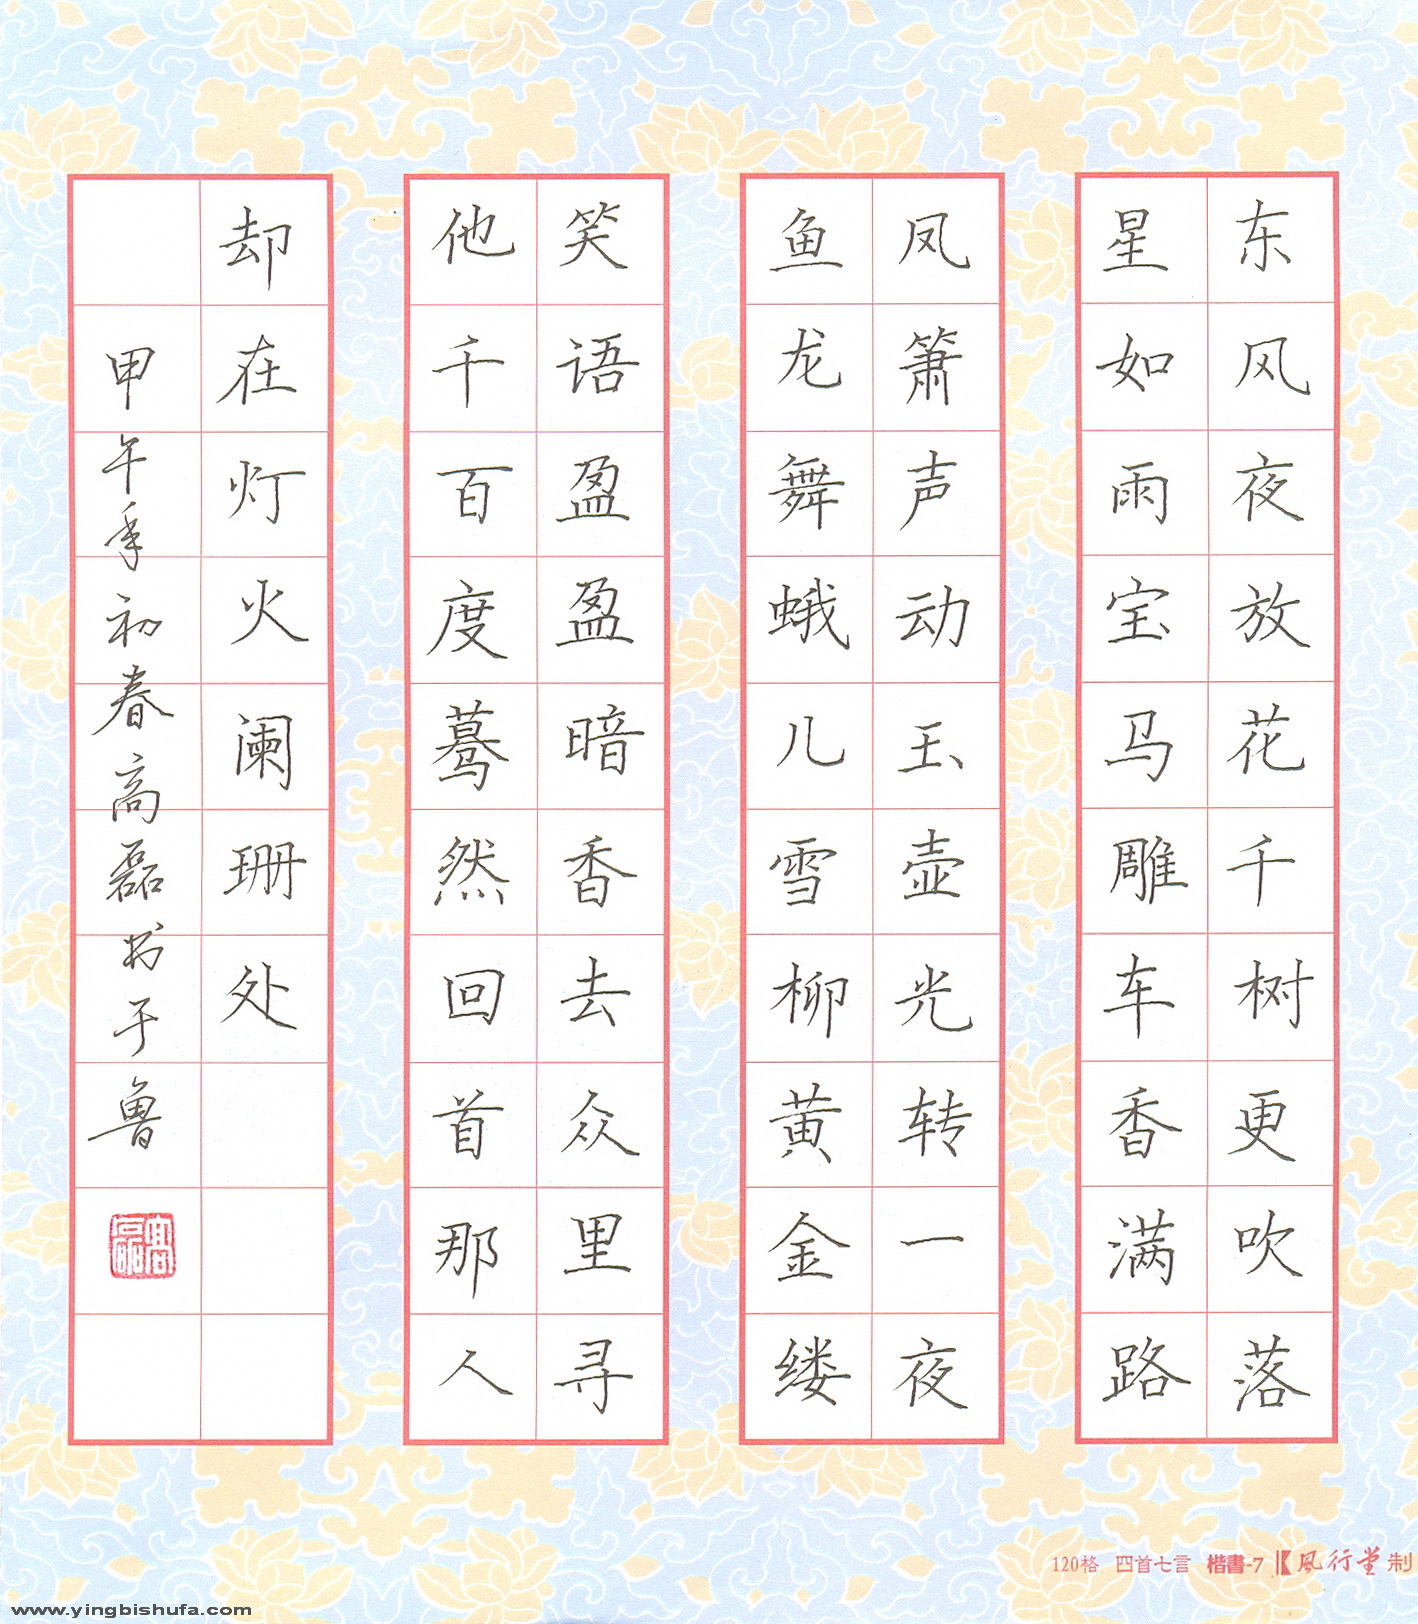 东风夜放花千树更吹落
星如雨宝马雕车香满路
凤箫声动玉壶光转一夜
鱼龙舞蛾儿雪柳黄金缕
笑语盈盈暗香去众里寻
他千百度蓦然回首那人
却在灯火阑珊处
甲午年初春高磊书于鲁
高磊
120格 四首七言 楷書-7 風行堂制
www.yingbishufa.com